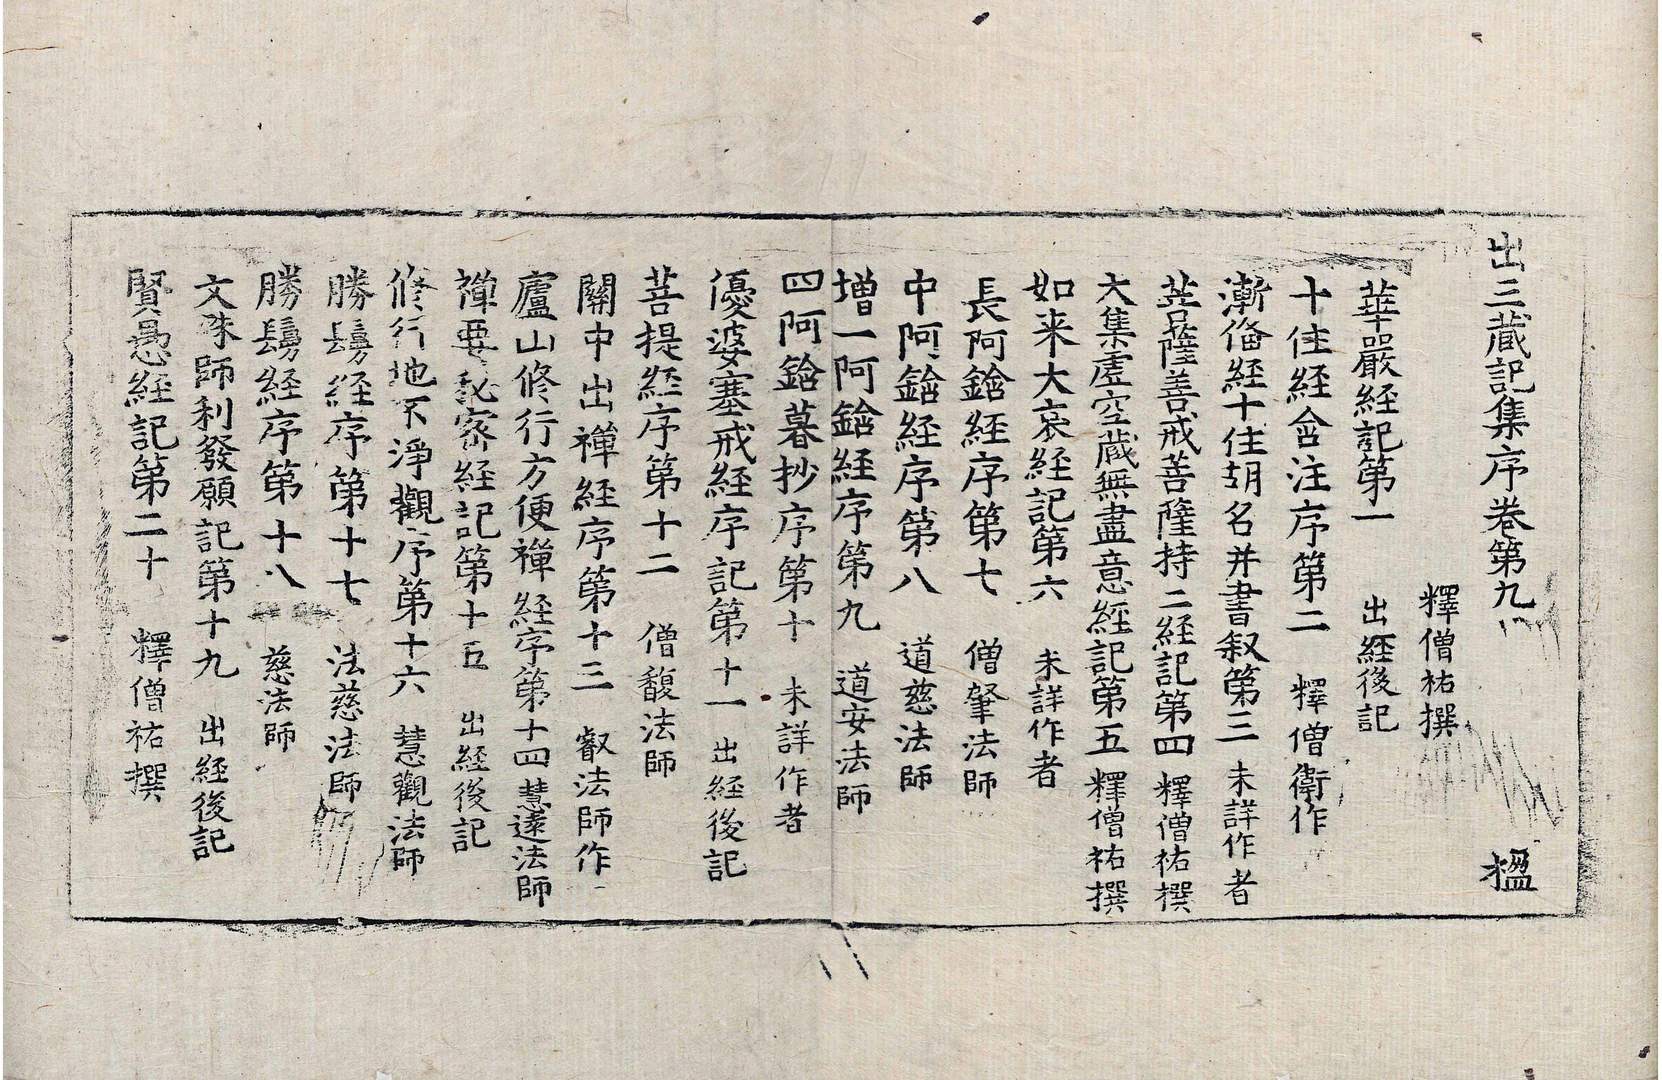 出三蔵記集序巻第九　楹
釋僧祐撰
華嚴経記第一　出経後記
十住経含注序第二　釋僧衛作
漸俻経十住胡名并書叙第三　未詳作者
菩薩善戒菩薩持二経記第四　釋僧祐撰
大集虛空蔵無盡意経記第五　釋僧祐撰
如来大哀経記第六　未詳作者
長阿鋡経序第七　僧肇法師
中阿鋡経序第八　道慈法師
增一阿鋡経序第九　道安法師
四阿鋡暮抄序第十　未詳作者
優婆塞戒経序記第十一　出経後記
菩提経序第十二　僧馥法師
關中出禪経序第十三　叡法師作
廬山修行方便禪経序第十四　慧遠法師
禪要秘密経記第十五　出経後記
修行地不淨觀序第十六　慧觀法師
勝鬘経序第十七　法慈法師
勝鬘経序第十八　慈法師
文殊師利發願記第十九　出経後記
賢愚経記第二十　釋僧祐撰